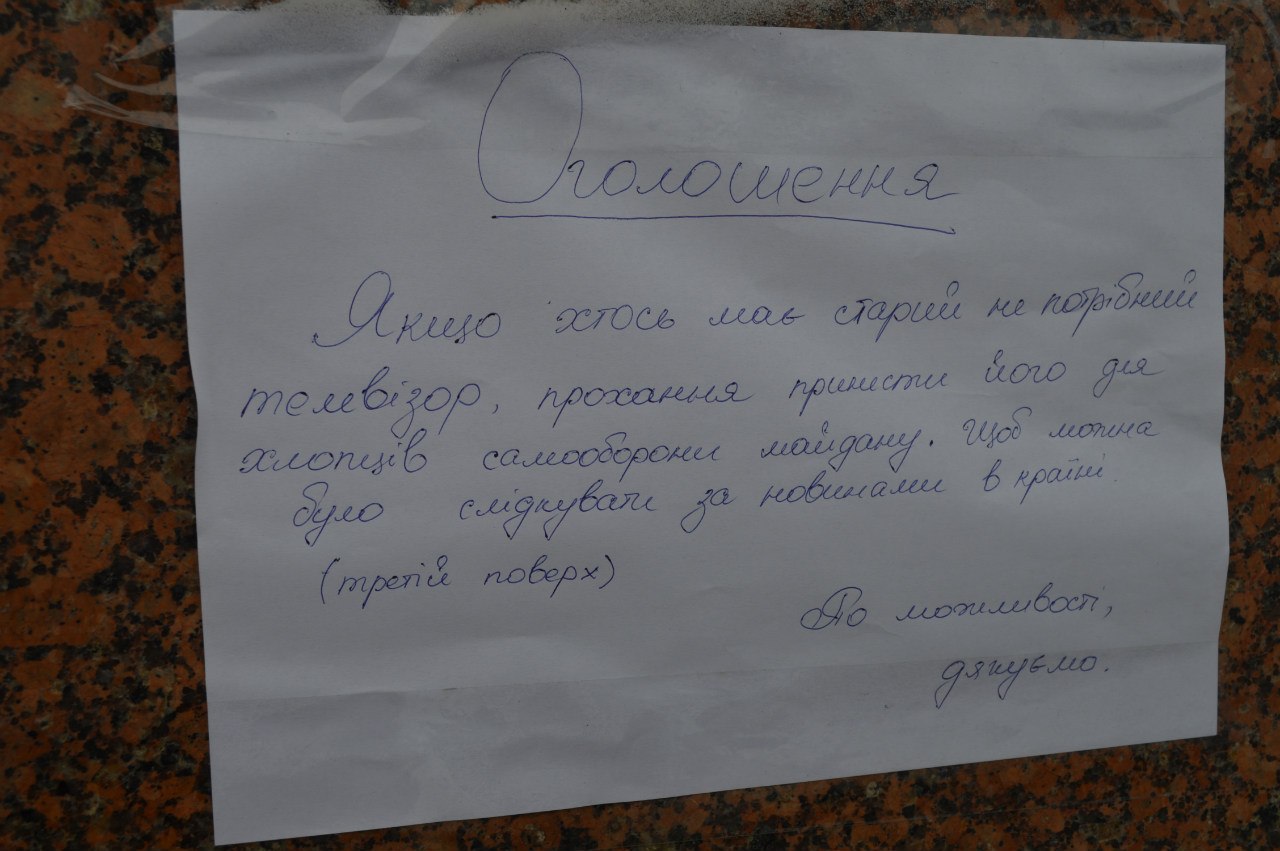 Оголошення
Якщо хтось має старий не потрібний
телевізор, прохання принисти його для
хлопців самооборони майдану. Щоб можна
було слідкувати за новинами в країні.
(третій поверх)
По можливості,
дякуємо.